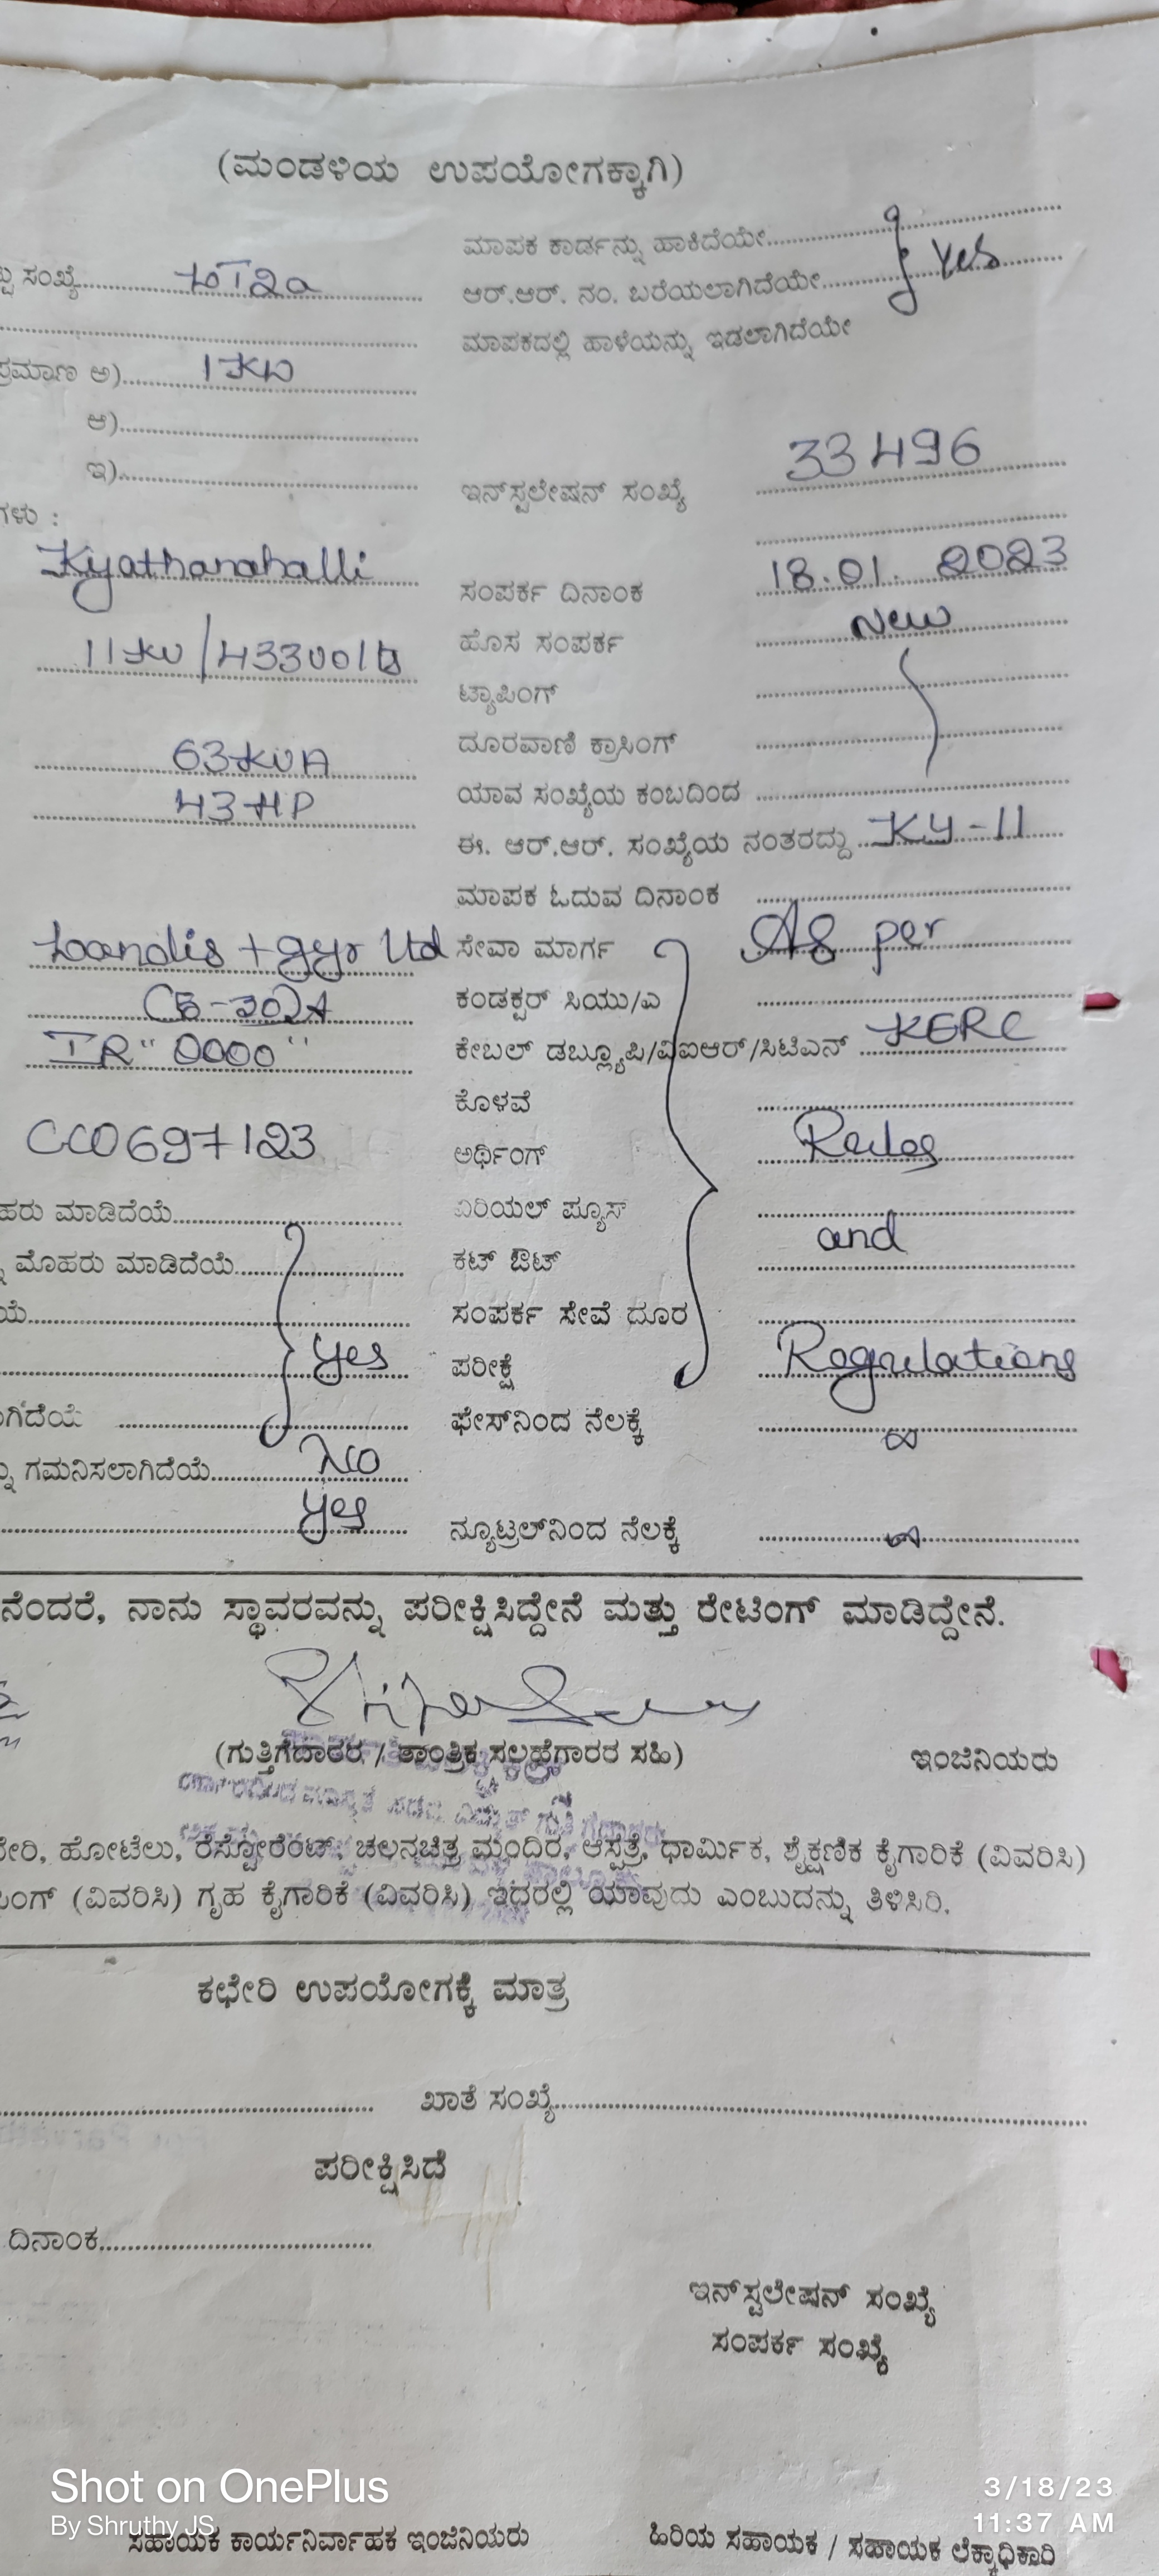 (ಮಂಡಳಿಯ ಉಪಯೋಗಕ್ಕಾಗಿ)
ಮಾಪಕ ಕಾರ್ಡನ್ನು ಹಾಕಿದೆಯೇ
ಸಂಖ್ಯೆ LT2a ಆರ್.ಆರ್. ನಂ. ಬರೆಯಲಾಗಿದೆಯೇ Yes
ಮಾಪಕದಲ್ಲಿ ಹಾಳೆಯನ್ನು ಇಡಲಾಗಿದೆಯೇ
ಪ್ರಮಾಣ ಅ) 1KW
ಆ)
ಇ) ಇನ್‌ಸ್ಟಲೇಷನ್ ಸಂಖ್ಯೆ 33496
ಗಳು :
Kyathanahalli ಸಂಪರ್ಕ ದಿನಾಂಕ 18.01.2023
11KV/433volts ಹೊಸ ಸಂಪರ್ಕ New
ಟ್ಯಾಪಿಂಗ್
63KVA ದೂರವಾಣಿ ಕ್ರಾಸಿಂಗ್
43HP ಯಾವ ಸಂಖ್ಯೆಯ ಕಂಬದಿಂದ
ಈ. ಆರ್.ಆರ್. ಸಂಖ್ಯೆಯ ನಂತರದ್ದು KY-11
ಮಾಪಕ ಓದುವ ದಿನಾಂಕ
Landis + gyr Ltd ಸೇವಾ ಮಾರ್ಗ As per
ಕಂಡಕ್ಟರ್ ಸಿಯು/ಎ
IR "0000" ಕೇಬಲ್ ಡಬ್ಲ್ಯೂಪಿ/ವಿಐಆರ್/ಸಿಟಿಎನ್ KERC
ಕೊಳವೆ
CC0697123 ಅರ್ಥಿಂಗ್ Rules
ಹರು ಮಾಡಿದೆಯೆ ಏರಿಯಲ್ ಫ್ಯೂಸ್
ಮೊಹರು ಮಾಡಿದೆಯೆ ಕಟ್ ಔಟ್ and
ಯೆ ಸಂಪರ್ಕ ಸೇವೆ ದೂರ
Yes ಪರೀಕ್ಷೆ Regulations
ಗಿದೆಯೆ ಫೇಸ್‌ನಿಂದ ನೆಲಕ್ಕೆ ∞
ಗಮನಿಸಲಾಗಿದೆಯೆ No
Yes ನ್ಯೂಟ್ರಲ್‌ನಿಂದ ನೆಲಕ್ಕೆ
ನೆಂದರೆ, ನಾನು ಸ್ಥಾವರವನ್ನು ಪರೀಕ್ಷಿಸಿದ್ದೇನೆ ಮತ್ತು ರೇಟಿಂಗ್ ಮಾಡಿದ್ದೇನೆ.
(ಗುತ್ತಿಗೆದಾರರ / ತಾಂತ್ರಿಕ ಸಲಹೆಗಾರರ ಸಹಿ) ಇಂಜಿನಿಯರು
ಕೇರಿ, ಹೋಟೆಲು, ರೆಸ್ಟೋರೆಂಟ್, ಚಲನಚಿತ್ರ ಮಂದಿರ, ಆಸ್ಪತ್ರೆ, ಧಾರ್ಮಿಕ, ಶೈಕ್ಷಣಿಕ ಕೈಗಾರಿಕೆ (ವಿವರಿಸಿ)
ಂಗ್ (ವಿವರಿಸಿ) ಗೃಹ ಕೈಗಾರಿಕೆ (ವಿವರಿಸಿ) ಇದರಲ್ಲಿ ಯಾವುದು ಎಂಬುದನ್ನು ತಿಳಿಸಿರಿ.
ಕಛೇರಿ ಉಪಯೋಗಕ್ಕೆ ಮಾತ್ರ
ಖಾತೆ ಸಂಖ್ಯೆ
ಪರೀಕ್ಷಿಸಿದೆ
ದಿನಾಂಕ
ಇನ್‌ಸ್ಟಲೇಷನ್ ಸಂಖ್ಯೆ
ಸಂಪರ್ಕ ಸಂಖ್ಯೆ
Shot on OnePlus 3/18/23
By Shruthy JS 11:37 AM
ಸಹಾಯಕ ಕಾರ್ಯನಿರ್ವಾಹಕ ಇಂಜಿನಿಯರು ಹಿರಿಯ ಸಹಾಯಕ / ಸಹಾಯಕ ಲೆಕ್ಕಾಧಿಕಾರಿ